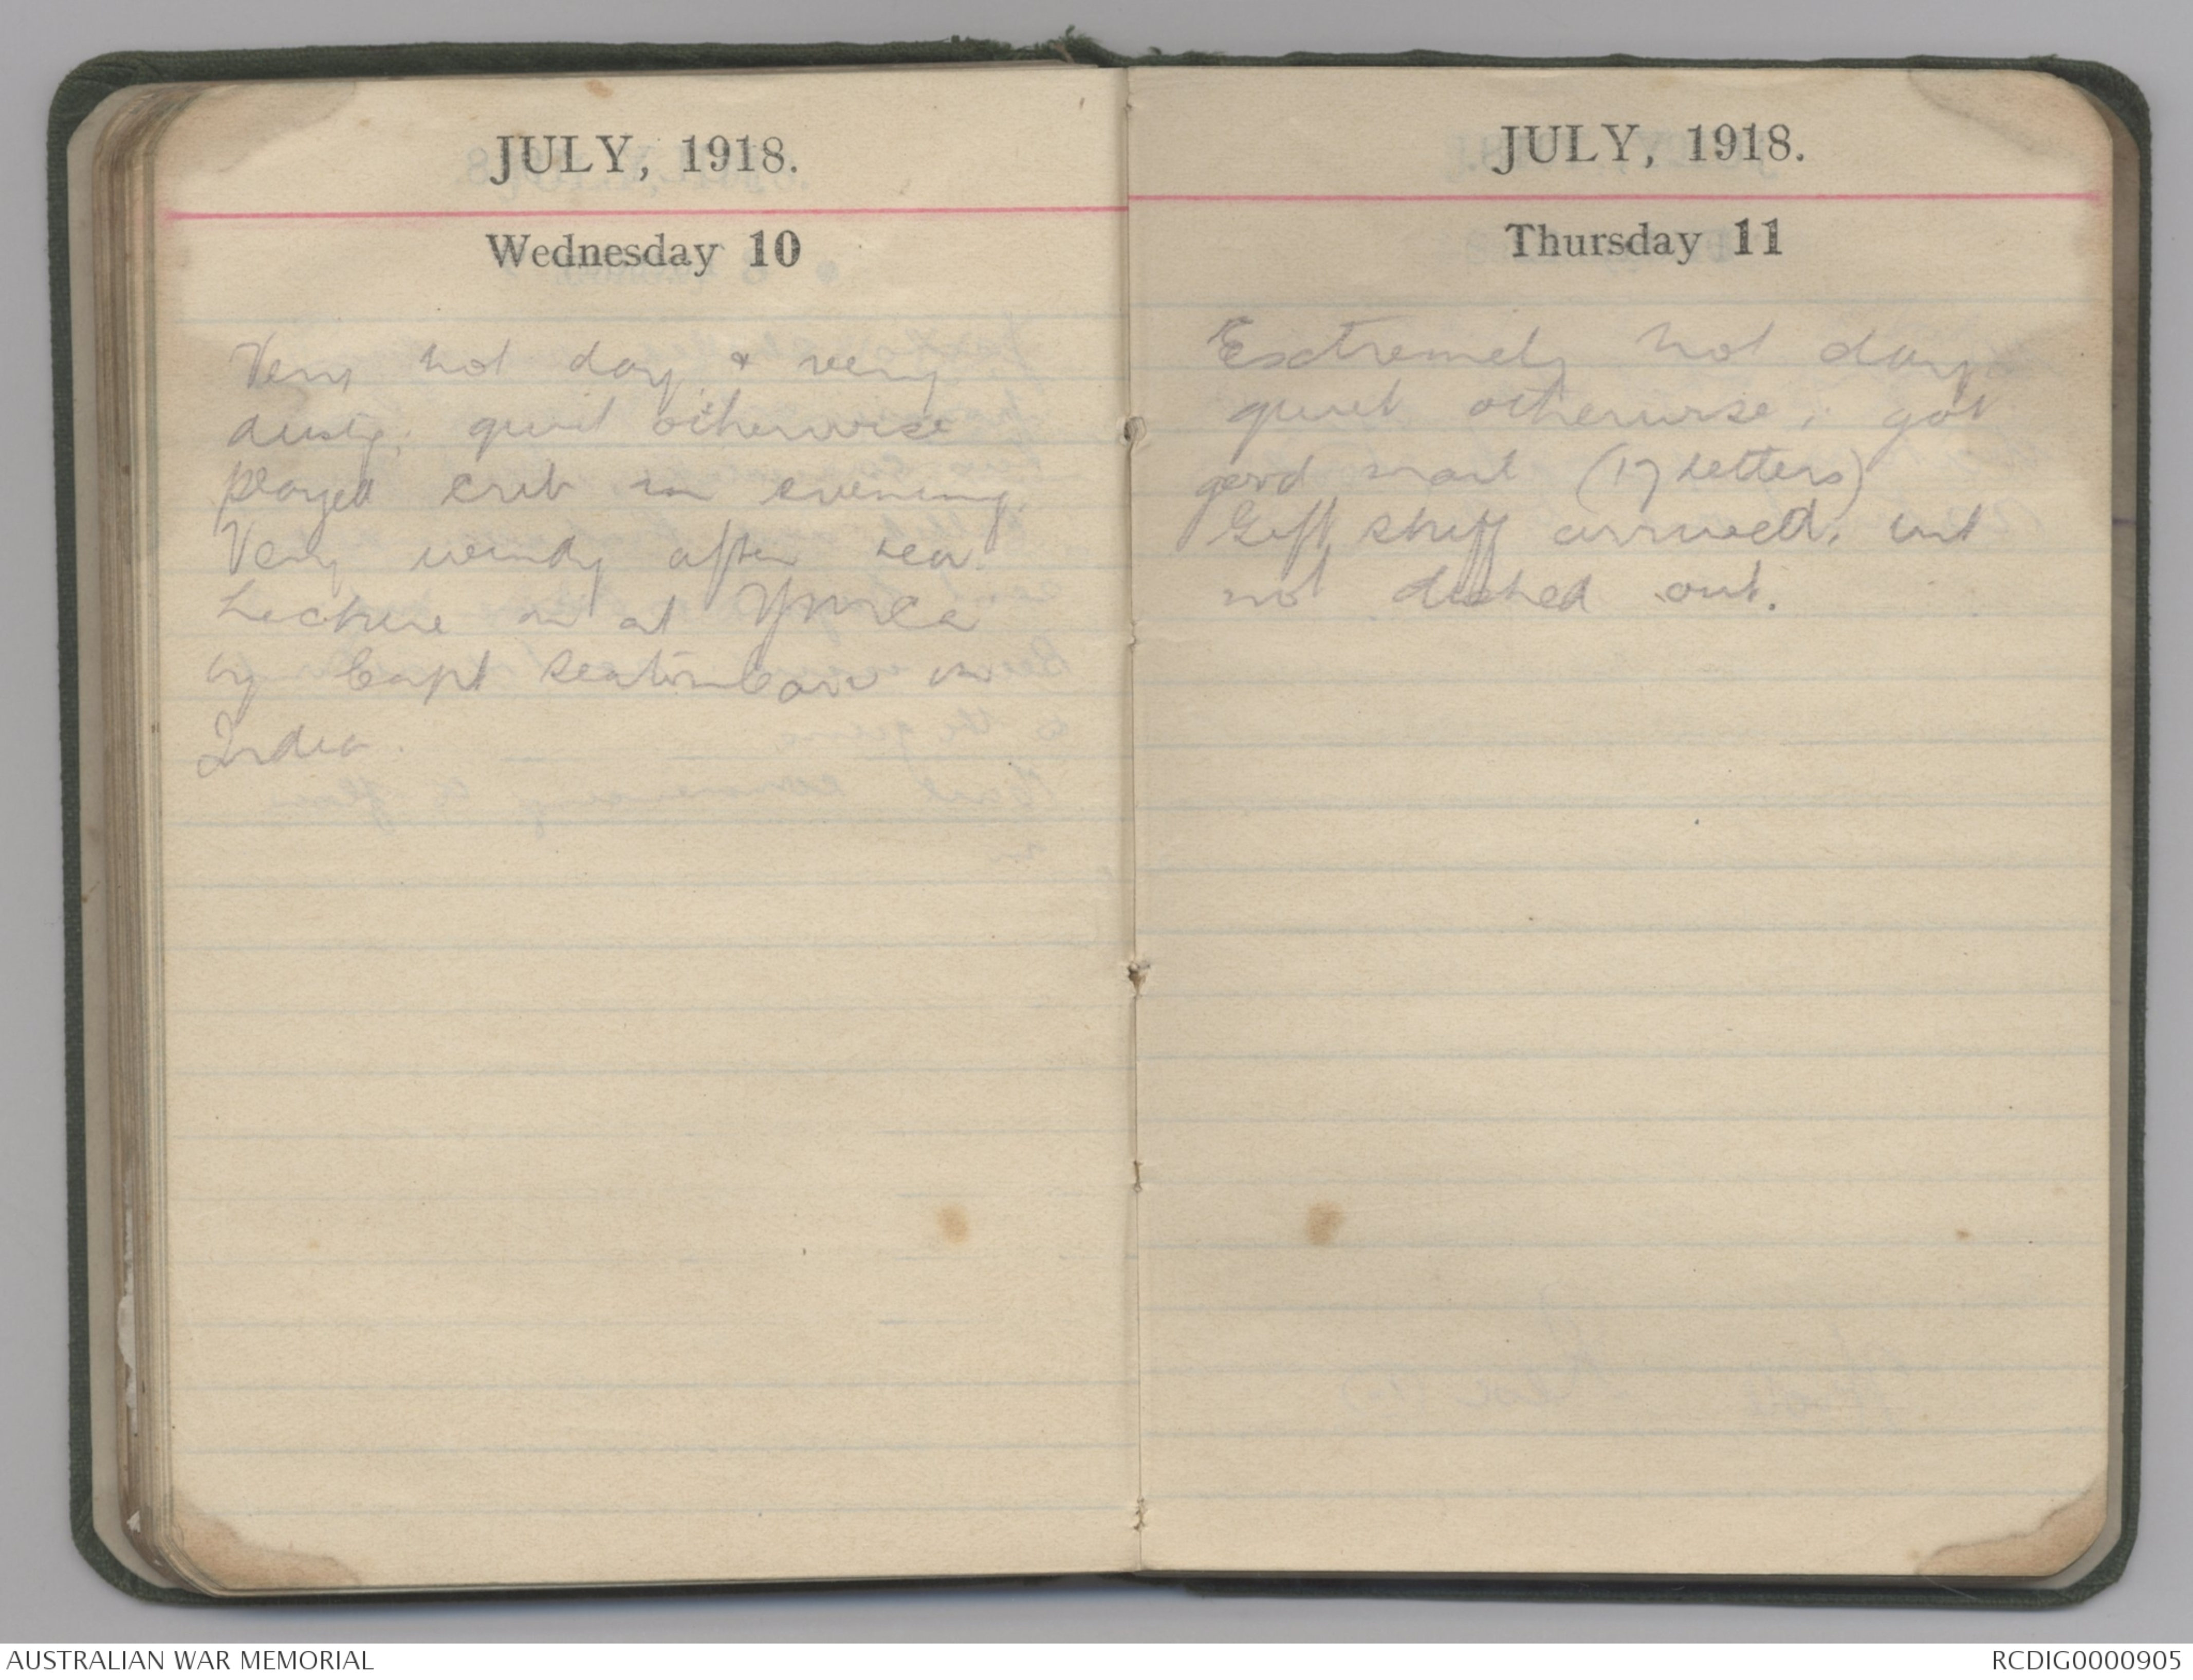 JULY, 1918.
Wednesday 10
Very hot day & very
dusty. quiet otherwise
played crib in evening.
Very windy after tea.
Lecture on at YMCA
by Capt Seaton Carr on
India.
JULY, 1918.
Thursday 11
Extremely hot day
quiet otherwise, got
good mail (17 letters)
Gift stuff arrived, but
not dished out.
AUSTRALIAN WAR MEMORIAL
RCDIG0000905